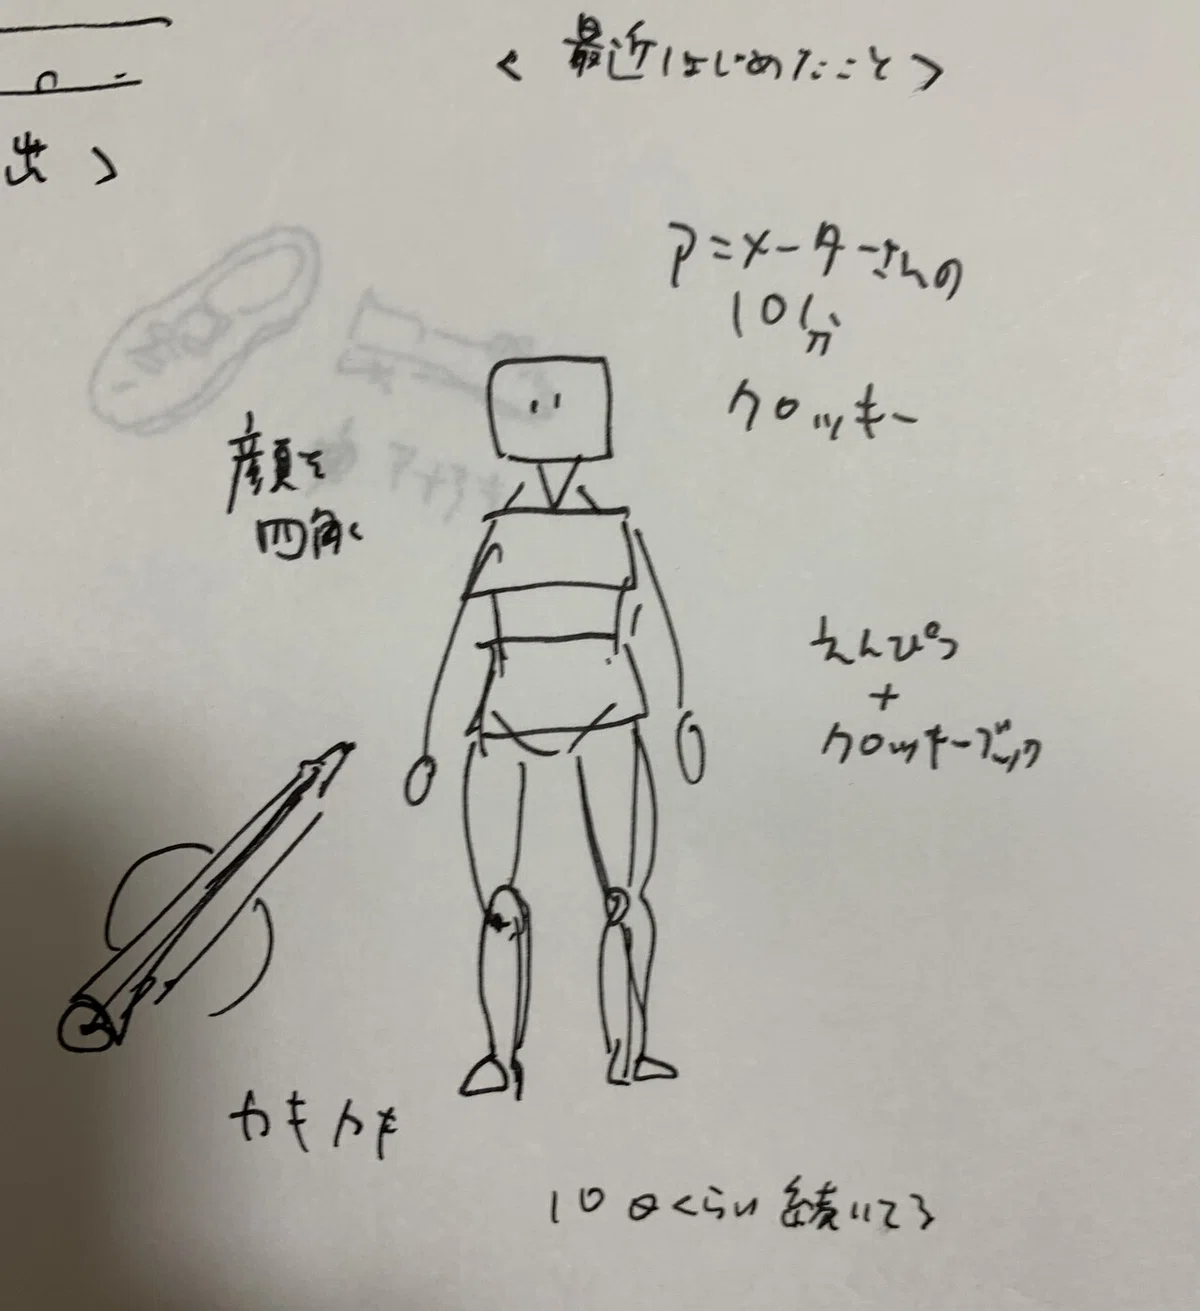 出>
<最近はじめたこと>
アニメーターさんの
10分
クロッキー
顔を
四角く
えんぴつ
+
クロッキーブック
カキカキ
10日くらい続いてる